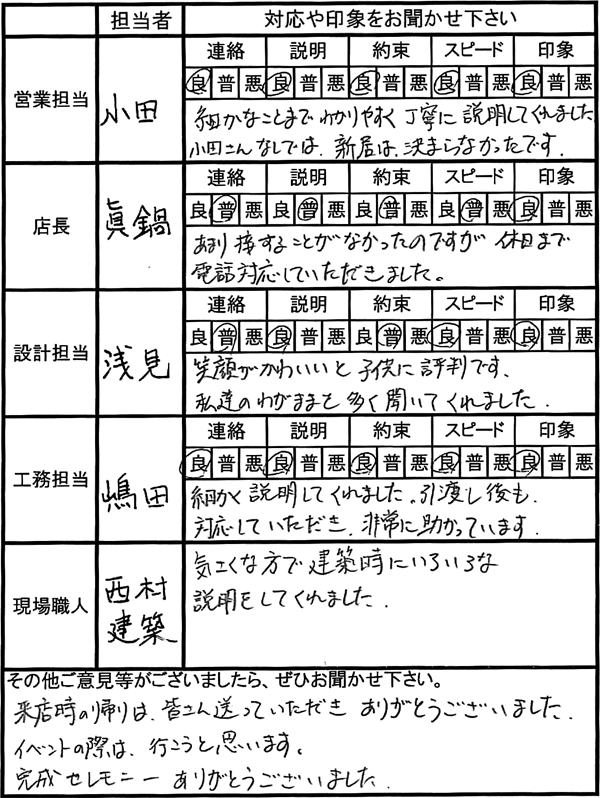 担当者 対応や印象をお聞かせ下さい
営業担当 小田
連絡 説明 約束 スピード 印象
良 普 悪 良 普 悪 良 普 悪 良 普 悪 良 普 悪
細かなことまでわかりやすく丁寧に説明してくれました
小田さんなしでは、新居は、決まらなかったです。
店長 眞鍋
連絡 説明 約束 スピード 印象
良 普 悪 良 普 悪 良 普 悪 良 普 悪 良 普 悪
あまり接することがなかったのですが 休日まで
電話対応していただきました。
設計担当 浅見
連絡 説明 約束 スピード 印象
良 普 悪 良 普 悪 良 普 悪 良 普 悪 良 普 悪
笑顔がかわいいと子供に評判です、
私達のわがままを多く聞いてくれました.
工務担当 嶋田
連絡 説明 約束 スピード 印象
良 普 悪 良 普 悪 良 普 悪 良 普 悪 良 普 悪
細かく説明してくれました。引渡し後も、
対応していただき、非常に助かっています.
現場職人 西村
建築
気さくな方で建築時にいろいろな
説明をしてくれました.
その他ご意見等がございましたら、ぜひお聞かせ下さい。
来店時の帰りは、皆さん送っていただき ありがとうございました.
イベントの際は、行こうと思います。
完成セレモニー ありがとうございました.